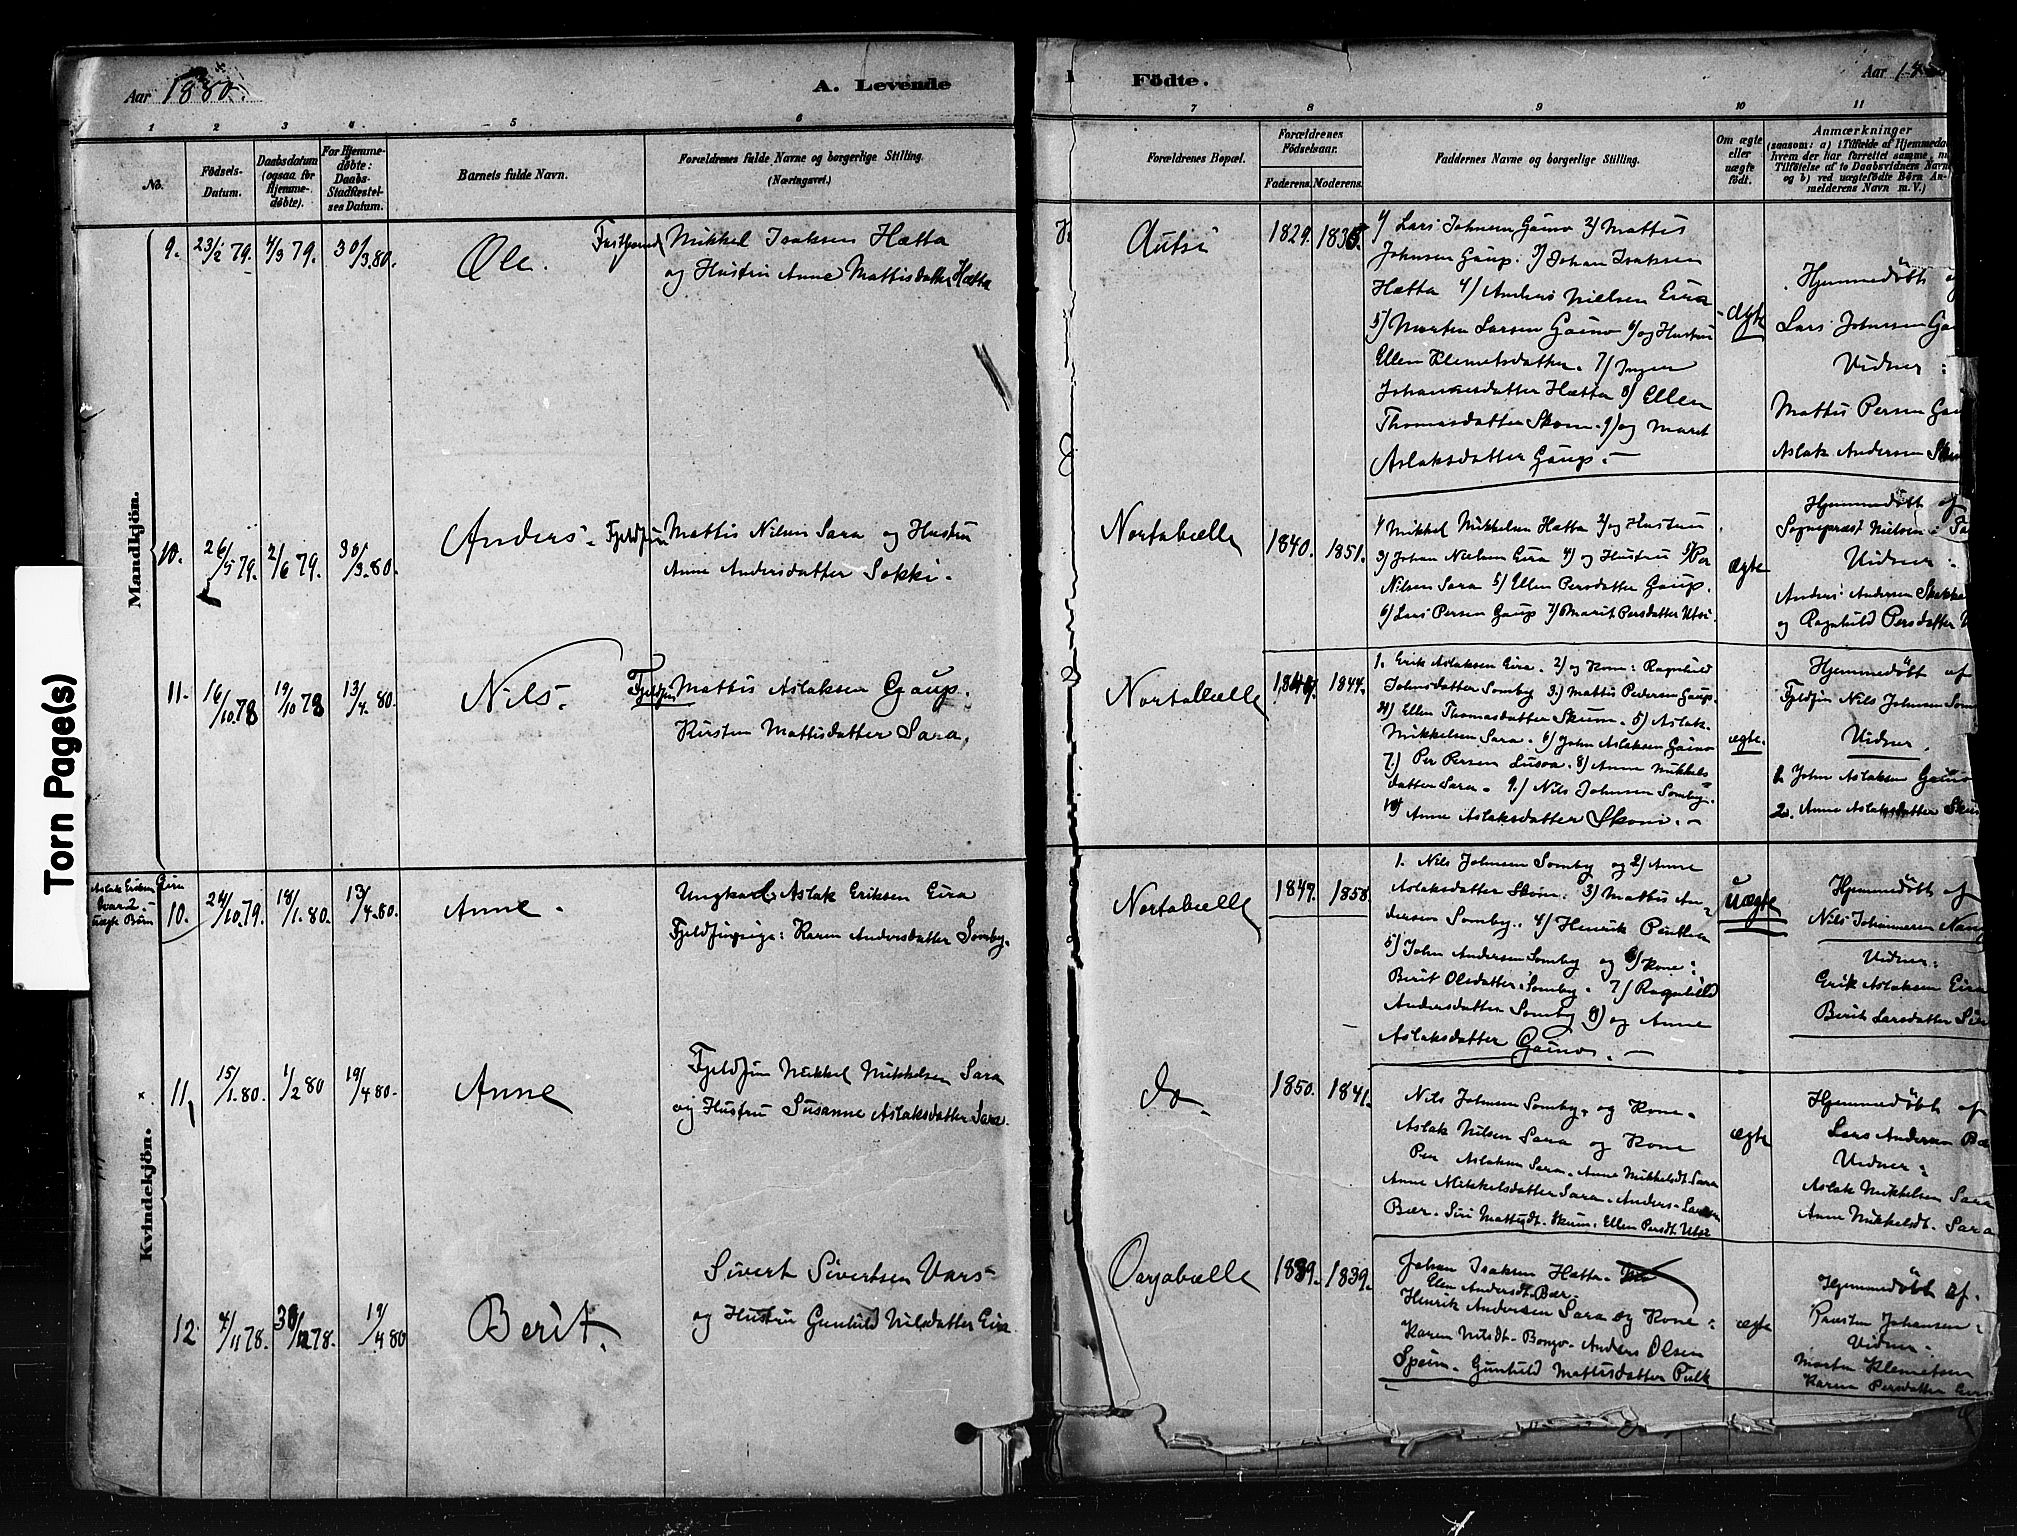 Torn Page(s)
Aar 1880.
A. Levende
1 2 3 4 5 6
No.
Födsels-
Datum.
Daabsdatum
(ogsaa for
Hjemme-
døbte).
For Hjemme-
døbte:
Daabs-
Stadfæstel-
ses Datum.
Barnets fulde Navn.
Forældrenes fulde Navne og borgerlige Stilling.
(Næringsvei.)
Mandkjön.
9. 23/2 79. 4/3 79. 30/3.80. Ole. Mikkel Isaksen Hætta
og Hustru Anne Mattisdatter Hætta
10. 26/5 79. 2/6 79. 30/3.80. Anders. Fjeldfin Mattis Nilsen Sara og Hustru
Anne Andersdatter Sokki.
11. 16/10.78 19/10 78 13/4.80. Nils. Fjeldfin Mattis Aslaksen Gaup.
Kirsten Mattisdatter Sara,
Kvindekjön.
Aslak Eriksen Eira
2
uægte Børn
10. 24/10.79. 18/1.80. 13/4.80. Anne. Ungkarl Aslak Eriksen Eira
Fjeldfinpige: Karen Andersdatter Somby.
11, 15/1.80. 1/2 80 19/4 80. Anne Fjeldfin Mikkel Mikkelsen Sara
og Hustru Susanne Aslaksdatter Sara.
12 4/11 78. 30/12 78. 19/4 80 Berit. Sivert Sivertsen Vars
og Hustru Gunhild Nilsdatter Eira.
Födte.
Aar 18
7 8 9 10 11
Forældrenes Bopæl.
Forældrenes
Födselsaar.
Faderens. Moderens.
Faddernes Navne og borgerlige Stilling.
Om ægte
eller
uægte
födt.
Anmærkninger
(saasom: a) i Tilfælde af Hjemmedaab
hvem der har forrettet samme, m
Tilföielse af to Daabsvidners Navn
og b) ved uægtefödte Börn An-
melderens Navn m. V.)
Autsi 1829. 1835.
1) Lars Johnsen Gaino 2) Mattis
Johnsen Gaup. 3) Johan Isaksen
Hætta 4) Anders Nielsen Eira
5) Morten Larsen Gaino 6) og Hustru
Ellen Klemetsdatter. 7) Inger
Johannesdatter Hætta 8) Ellen
Thomasdatter Skum. 9) og Marit
Aslaksdatter Gaup. –
ægte
Hjemmedöbt af
Lars Johnsen Ga
Vidner:
Mattis Persen Ga
Aslak Andersen
Nortabælle 1840. 1851.
1) Mikkel Mikkelsen Hætta 2) og Hustru
3) Johan Nielsen Eira 4) og Hustru 5) Per
Nilsen Sara 5) Ellen Persdatter Gaup.
6) Lars Persen Gaup 7) Marit Persdatter Utsi.
ægte
Hjemmedöbt af
Sognepræst Nielsen.
Vidner:
Anders Andersen
og Ragnhild Persdatter
Nortabælle 1844.
1. Erik Aslaksen Eira. 2) og Kone: Ragnhild
Johnsdatter Somby 3.) Mattis Pedersen Gaup.
4) Ellen Thomasdatter Skum. 5) Aslak
Mikkelsen Sara. 6) John Aslaksen Gaino
7.) Per Persen 8) Anne Mikkels-
datter Sara. 9.) Nils Johnsen Somby.
10) Anne Aslaksdatter Skum. –
ægte.
Hjemmedöbt af
Fjeldfin Nils Johnsen Som
Vidner.
1. John Aslaksen Gaino
2. Anne Aslaksdatter
Nortabælle 1847. 1858.
1. Nils Johnsen Somby og 2) Anne
Aslaksdatter Skum. 3) Mattis An-
dersen Somby. 4) Henrik
5) John Andersen Somby og 6) Kone:
Berit Olsdatter Somby. 7) Ragnhild
Andersdatter Somby 8) og Anne
Aslaksdatter Gaino. –
Uægte
Hjemmedöbt af
Nils Johannesen
Vidner:
Erik Aslaksen Eira
Berit Larsdatter
do. 1850. 1841.
Nils Johnsen Somby. og Kone.
Aslak Nilsen Sara og Kone
Per Aslaksen Sara. Anne Mikkelsdt. Sara
Anne Mikkelsdatter Sara. Anders Larsen
Bær. Siri Mattisdt. Skum. Ellen Persdt. Utsi
ægte
Hjemmedöbt af
Lars Andersen Bær
Vidner:
Aslak Mikkelsen Sara
Anne Mikkelsdt. Sara
Oarjabælle 1839. 1839.
Johan Isaksen Hætta.
Elen Andersdt. Bær.
Henrik Andersen Sara og Kone:
Karen Nilsdt. Bongo. Anders Olsen
Spein. Gunhild Mattisdatter Pulk
ægte
Hjemmedöbt af.
Johansen:
Vidner:
Morten Klemetsen
Karen Persdatter